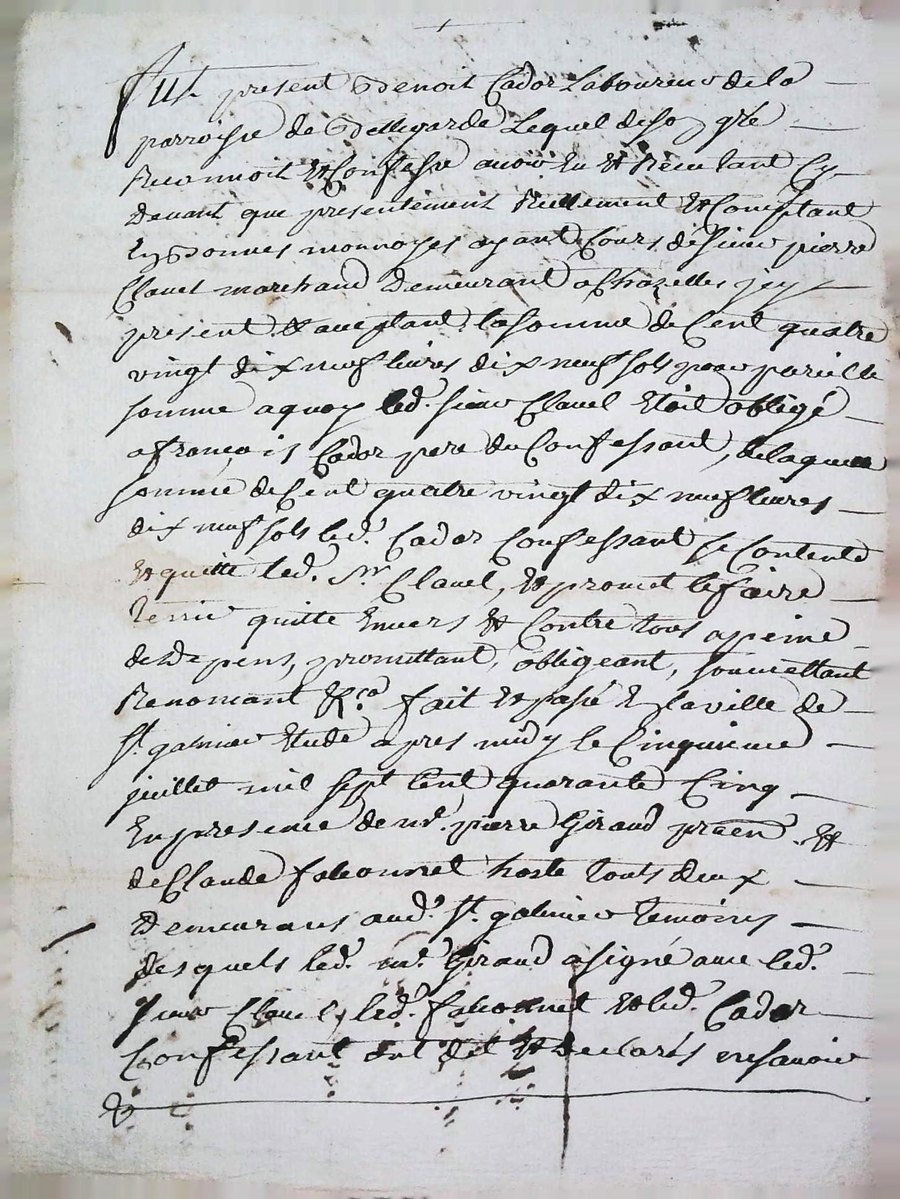 fut present Benoit Cador Laboureur de la
parroisse de Bellegarde Lequel de son gré
Reconnoit et Confesse avoir Eu et Receu tant Cy
Devant que presentement Reellement et Comptant
En Bonnes monnoyes ayant Cours de sieur pierre
Clavel marchand Demeurant a Chazelles jcy
present et acceptant, la somme de Cent quatre
vingt dix neuf livres dix neuf sols pour pareille
somme a quoy led. sieur Clavel Etoit obligé
a francois Cador pere du Confessant, de laquelle
somme de Cent quatre vingt dix neuf livres
dix neuf sols led. Cador Confessant se Contente
et quitte led. Sr. Clavel, et promet le faire
tenir quitte Envers et Contre tous a peine
de depens, promettant, obligeant, soumettant
Renoncant &ca. fait et passé En la ville de
St. galmier Etude apres midy le Cinquieme
juillet mil sept Cent quarante Cinq
En presence de me. pierre Giraud et
de Claude faconnet hoste touts deux
Demeurans aud. St. galmier temoins
desquels led. me. Giraud a signé avec led.
sieur Clavel, led. faconnet et led. Cador
Confessant ont dit et declarés ne savoir